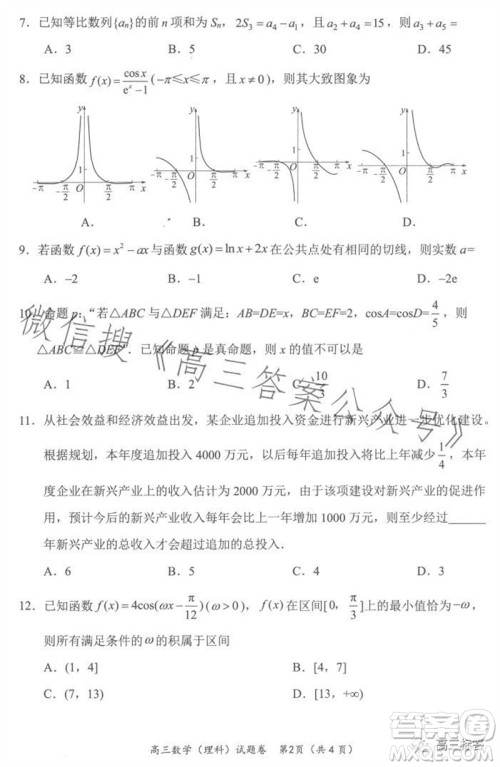 7. 已知等比数列{aₙ}的前n项和为Sₙ，2S₃=a₄-a₁，且a₂+a₄=15，则a₃+a₅=
A. 3 B. 5 C. 30 D. 45
8. 已知函数f(x)=cosx/(eˣ-1)(-π≤x≤π，且x≠0)，则其大致图象为
y 1 -π -π/2 O π/2 π x
y 1 -π -π/2 O π/2 π x
y 1 -π -π/2 O π/2 π x
y 1 -π -π/2 O π/2 π x
A. B. C. D.
9. 若函数f(x)=x²-ax与函数g(x)=lnx+2x在公共点处有相同的切线，则实数a=
A. -2 B. -1 C. e D. -2e
10. 命题p：“若△ABC与△DEF满足：AB=DE=x，BC=EF=2，cosA=cosD=4/5，则
△ABC≌△DEF”. 已知命题p是真命题，则x的值不可以是
A. 1 B. 2 C. 10/3 D. 7/3
11. 从社会效益和经济效益出发，某企业追加投入资金进行新兴产业进一步优化建设.
根据规划，本年度追加投入4000万元，以后每年追加投入将比上年减少1/4，本年
度企业在新兴产业上的收入估计为2000万元，由于该项建设对新兴产业的促进作
用，预计今后的新兴产业收入每年会比上一年增加1000万元，则至少经过______
年新兴产业的总收入才会超过追加的总投入.
A. 6 B. 5 C. 4 D. 3
12. 已知函数f(x)=4cos(ωx-π/12)(ω>0)，f(x)在区间[0，π/3]上的最小值恰为-ω，
则所有满足条件的ω的积属于区间
A. (1，4] B. [4，7]
C. (7，13) D. [13，
高三数学（理科）试题卷 第2页（共4页）
微信搜《高三答案公众号》
答案圈